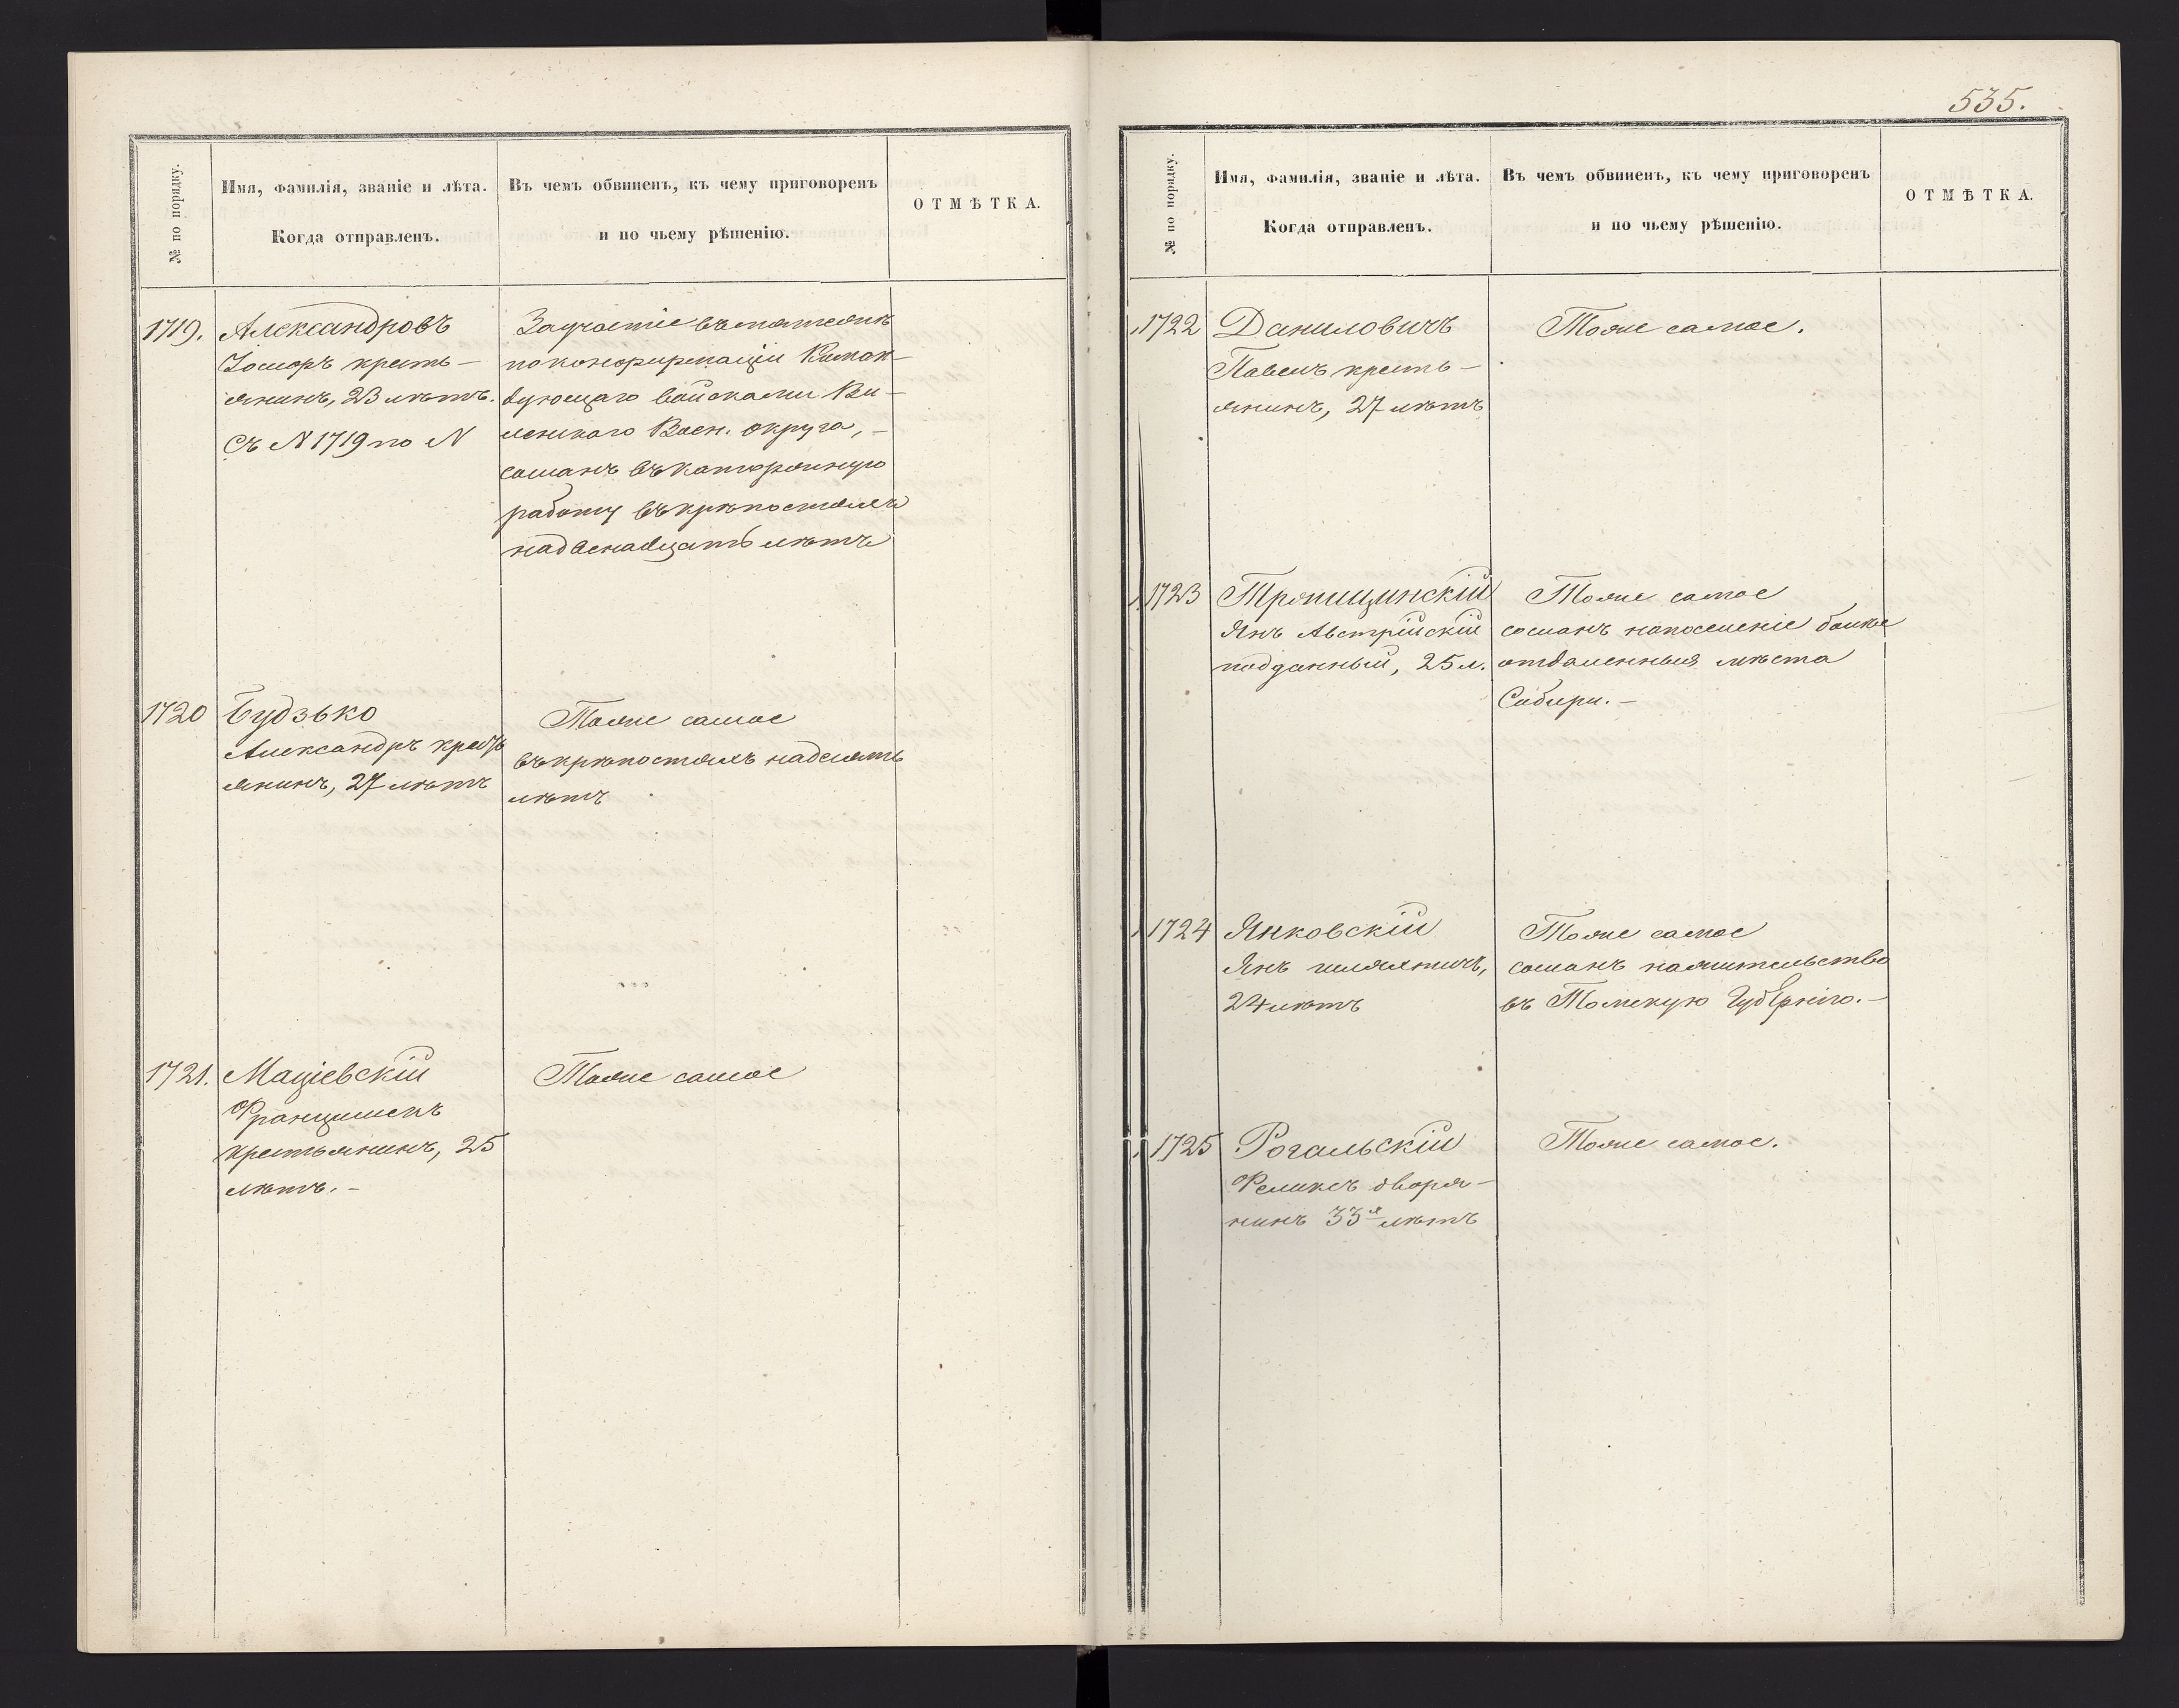 535.
№ по порядку.
Имя, фамилія, званіе и лѣта.
Когда отправленъ.
Въ чемъ обвиненъ, къ чему приговоренъ
и по чьему рѣшенію.
ОТМѢТКА.
1719.
Александровъ
кресть-
янинъ, 23 лѣтъ.
Съ N 1719 по N
За участіе въ мятежѣ
по конфирмаціи Коман-
дующаго войсками Ви-
ленскаго Воен. округа, -
сосланъ въ каторжную
работу въ крѣпостяхъ
на двенадцать лѣтъ
1720
Будзько
Александръ кресть
янинъ, 27 лѣтъ
Тоже самое
въ крѣпостяхъ на десять
лѣтъ
1721.
Маціевскій
Францишекъ
крестьянинъ, 25
лѣтъ. -
Тоже самое
№ по порядку.
Имя, фамилія, званіе и лѣта.
Когда отправленъ.
Въ чемъ обвиненъ, къ чему приговоренъ
и по чьему рѣшенію.
ОТМѢТКА.
1722
Даниловичъ
Павелъ кресть-
янинъ, 27 лѣтъ
Тоже самое.
1723
Янъ Австрійскій
подданный, 25 л.
Тоже самое
сосланъ на поселеніе
отдаленныя мѣста
Сибири. -
1724
Янковскій
Янъ шляхтичъ,
24 лѣтъ
Тоже самое
сосланъ на жительство
въ Томскую Губернію. -
1725
Рогальскій
Феликсъ дворя-
нинъ 33х лѣтъ
Тоже самое.